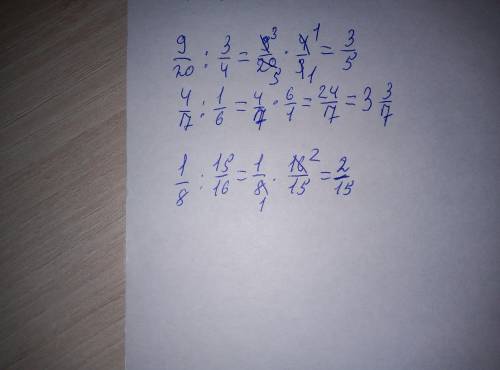 9/20 : 3/4 = 9³/20₅ · 4¹/3₁ = 3/5
4/7 : 1/6 = 4/7 · 6/1 = 24/7 = 3 3/7
1/8 : 15/16 = 1/8₁ · 16²/15 = 2/15